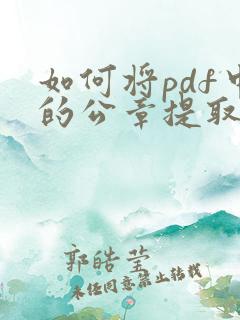 如何将pdf中
的公章提取
郭皓莹
未任同意禁止转载